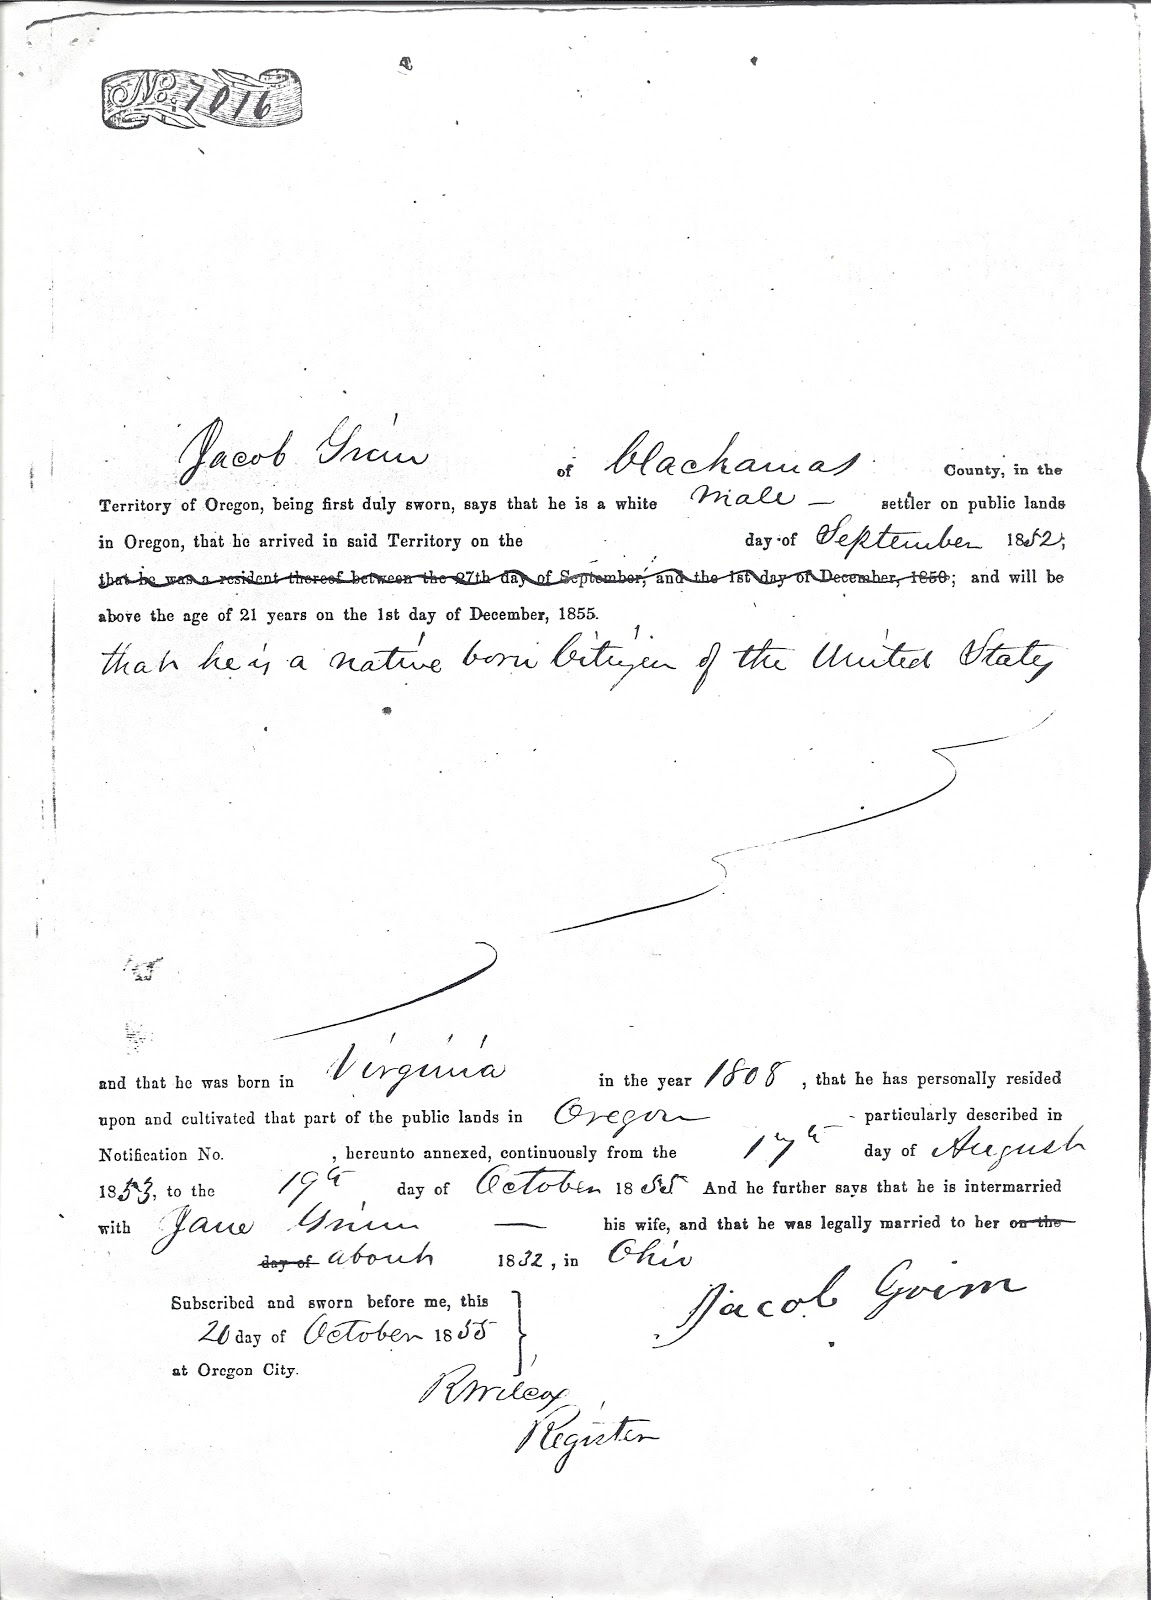 No. 7016
Jacob Grim of Clackamas County, in the
Territory of Oregon, being first duly sworn, says that he is a white Male – settler on public lands
in Oregon, that he arrived in said Territory on the day of September 1852;
that he was a resident thereof between the 27th day of September, and the 1st day of December, 1850; and will be
above the age of 21 years on the 1st day of December, 1855.
that he is a native born Citizen of the United States
and that he was born in Virginia in the year 1808, that he has personally resided
upon and cultivated that part of the public lands in Oregon particularly described in
Notification No. , hereunto annexed, continuously from the 17th day of August
1853, to the 19th day of October 1855 And he further says that he is intermarried
with Jane Grim — his wife, and that he was legally married to her on the
day of about 1832, in Ohio
Jacob Grim
Subscribed and sworn before me, this
20 day of October 1855
at Oregon City.
R Wilcox
Register